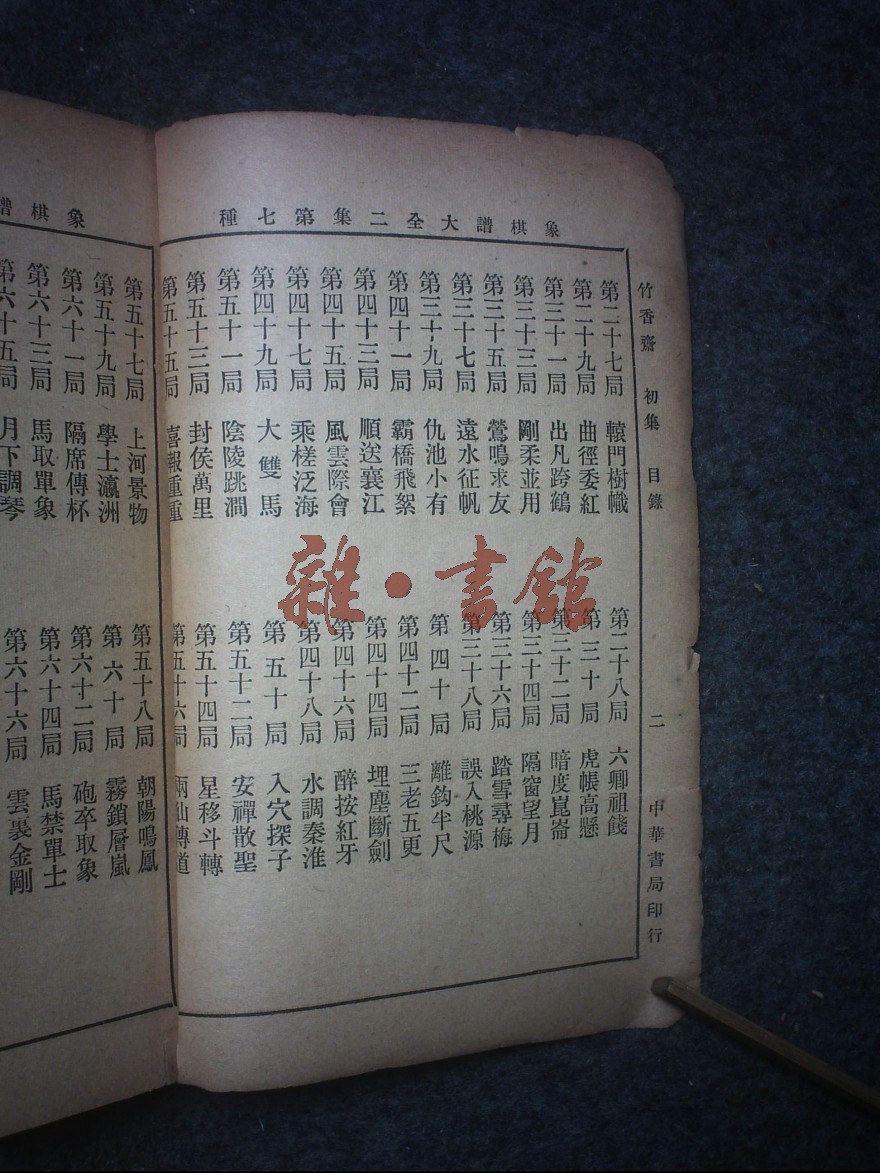 象棋譜大全二集第七種
竹香齋 初集 目錄 二 中華書局印行
第二十七局 轅門樹幟 第二十八局 六卿祖餞
第二十九局 曲徑委紅 第三十局 虎帳高懸
第三十一局 出凡跨鶴 第三十二局 暗度崑崙
第三十三局 剛柔並用 第三十四局 隔窗望月
第三十五局 鶯鳴求友 第三十六局 踏雪尋梅
第三十七局 遠水征帆 第三十八局 誤入桃源
第三十九局 仇池小有 第四十局 離鈎半尺
第四十一局 霸橋飛絮 第四十二局 三老五更
第四十三局 順送襄江 第四十四局 埋塵斷劍
第四十五局 風雲際會 第四十六局 醉按紅牙
第四十七局 乘槎泛海 第四十八局 水調秦淮
第四十九局 大雙馬 第五十局 入穴探子
第五十一局 陰陵跳澗 第五十二局 安禪散聖
第五十三局 封侯萬里 第五十四局 星移斗轉
第五十五局 喜報重重 第五十六局 兩仙傳道
雜·書館
象棋譜
第五十七局 上河景物 第五十八局 朝陽鳴鳳
第五十九局 學士瀛洲 第六十局 霧鎖層嵐
第六十一局 隔席傳杯 第六十二局 砲卒取象
第六十三局 馬取單象 第六十四局 馬禁單士
第六十五局 月下調琴 第六十六局 雲裏金剛